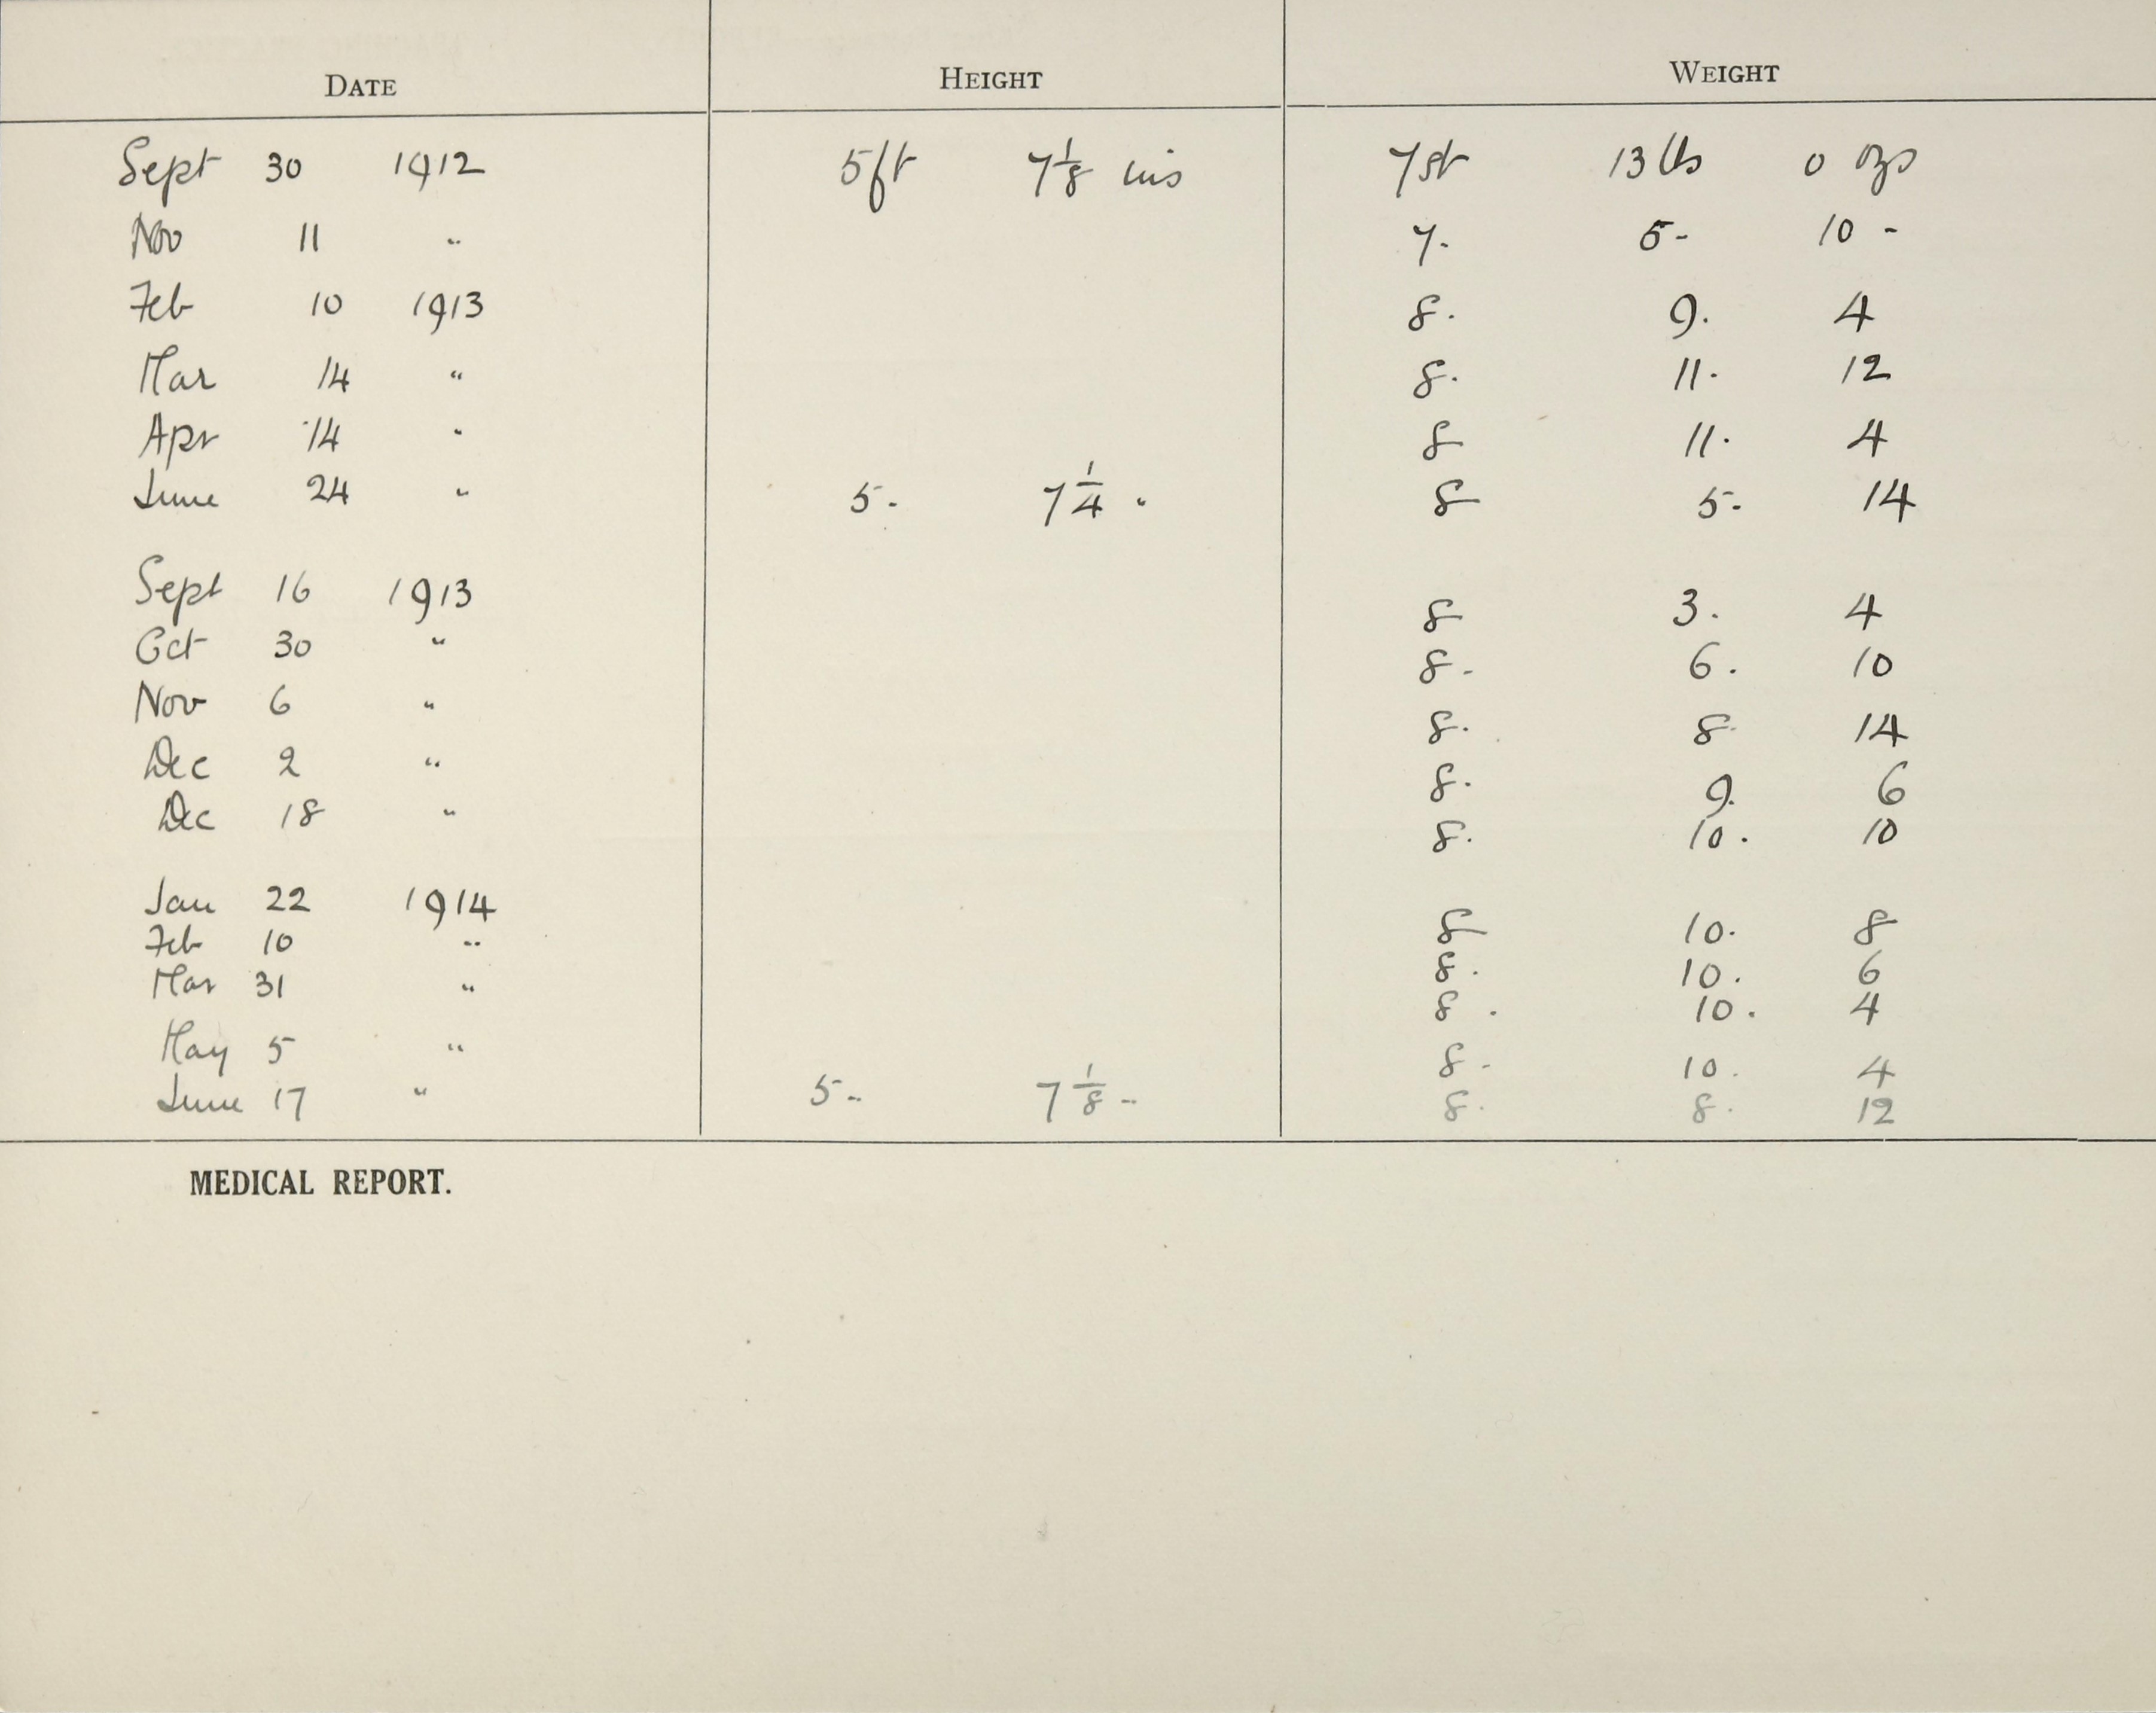 DATE HEIGHT WEIGHT
Sept 30 1912 5ft 7 1/8 ins 7st 13 lbs 0 ozs
Nov 11 " 7. 5- 10 -
Feb 10 1913 8. 9. 4
Mar 14 " 8. 11. 12
Apr 14 " 8 11. 4
June 24 " 5- 7 1/4 " 8 5- 14
Sept 16 1913 8 3. 4
Oct 30 " 8- 6. 10
Nov 6 " 8. 8 14
Dec 2 " 8. 9. 6
Dec 18 " 8. 10. 10
Jan 22 1914 8 10. 8
Feb 10 " 8. 10. 6
Mar 31 " 8. 10. 4
May 5 " 8- 10. 4
June 17 " 5- 7 1/8 " 8. 8. 12
MEDICAL REPORT.